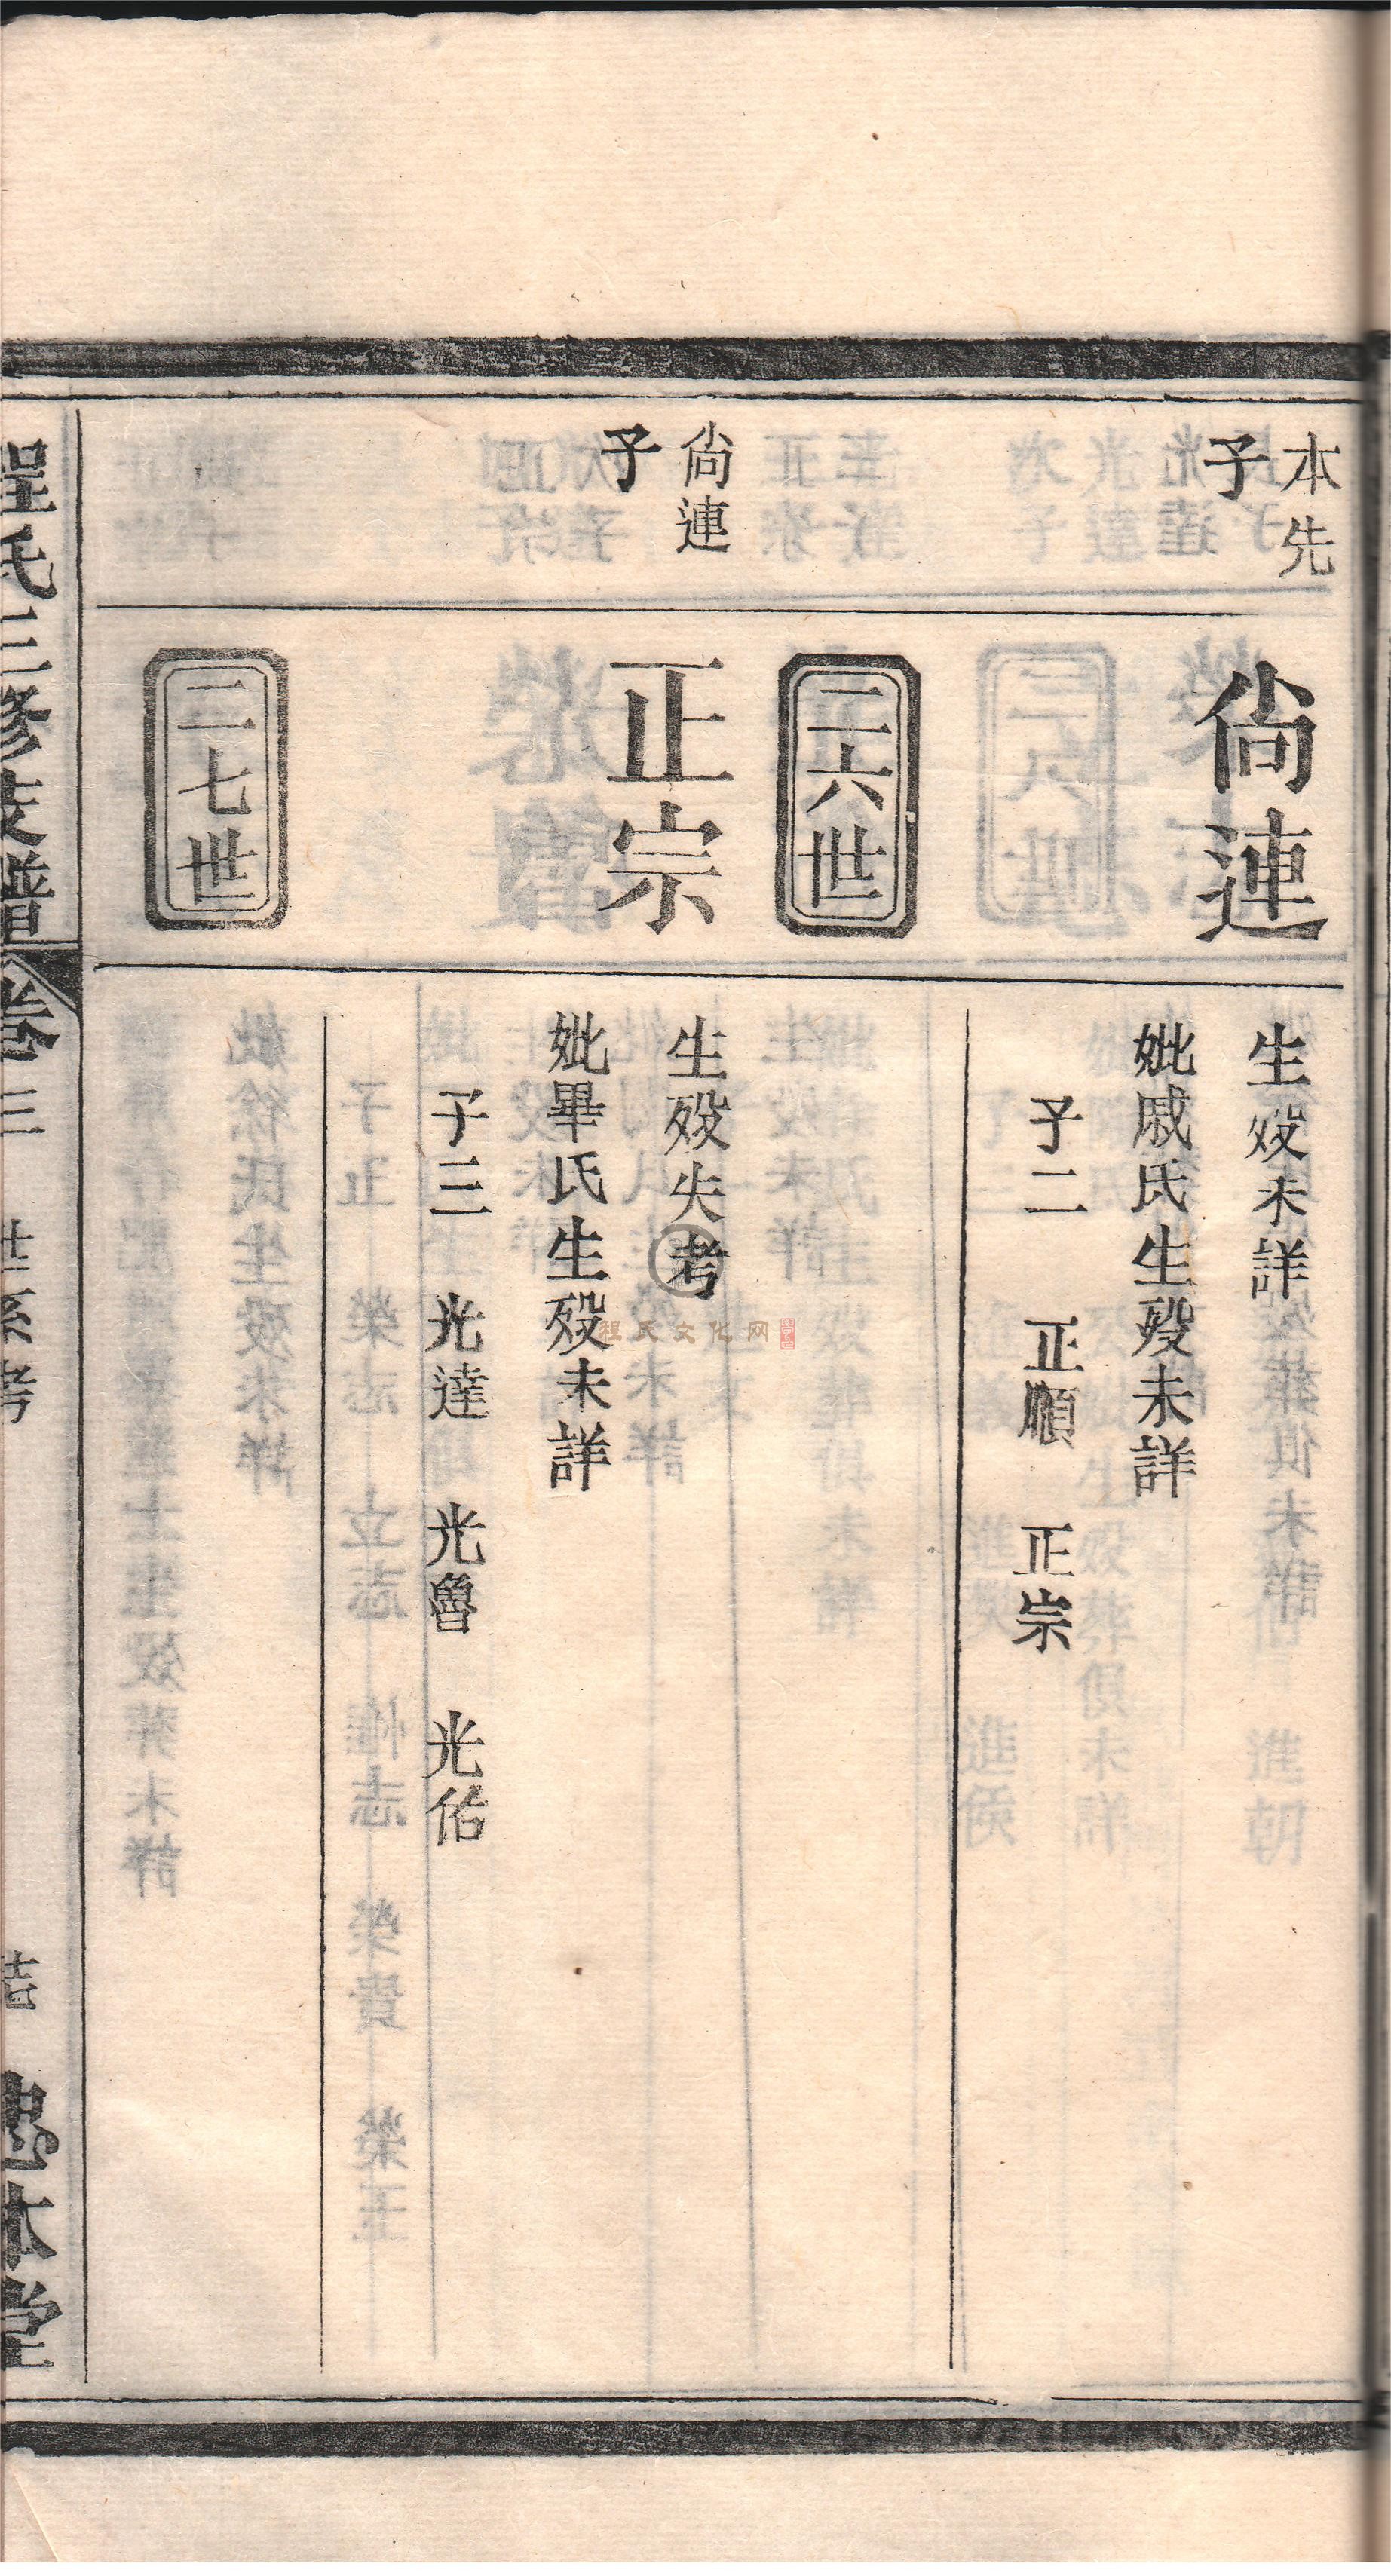 本先
子
尙連
生歿未詳
妣戚氏生歿未詳
子二 正順 正宗
二六世
尙連
子
正宗
生歿失考
妣畢氏生歿未詳
子三 光達 光魯 光佑
二七世
程氏三修支譜 卷三 世系考
本堂
程氏文化网